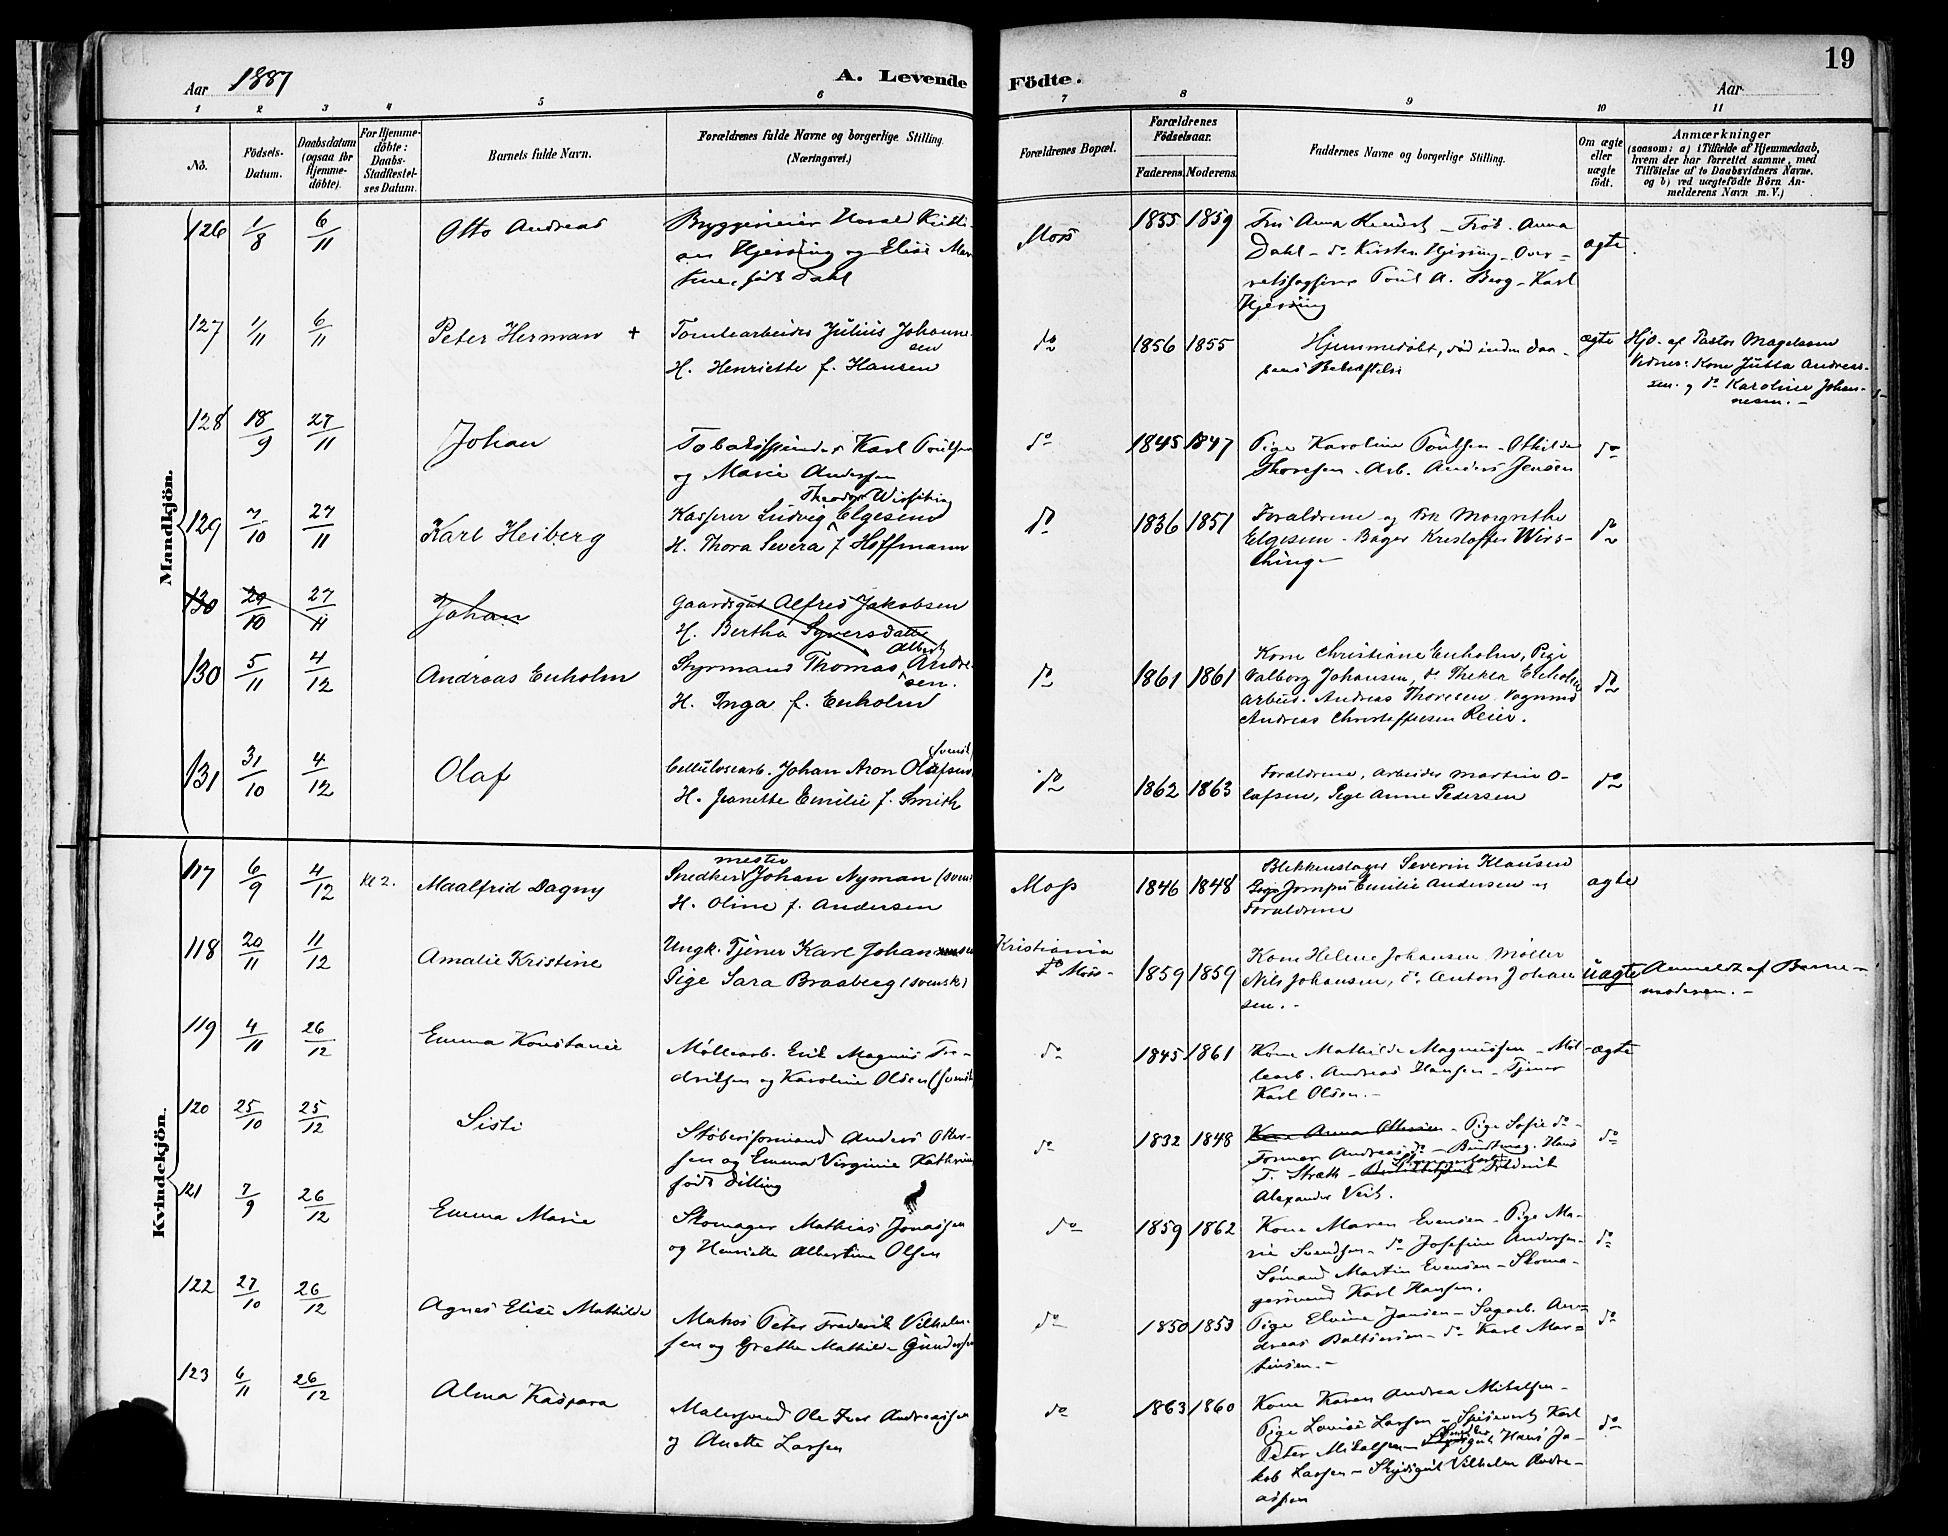 19
Aar 1887
A. Levende Födte.
Aar
1 2 3 4 5 6 7 8 9 10 11
No.
Födsels-Datum.
Daabsdatum (ogsaa for Hjemme-döbte).
For Hjemme-döbte: Daabs-Stadfestel-ses Datum.
Barnets fulde Navn.
Forældrenes fulde Navne og borgerlige Stilling. (Næringsvei.)
Forældrenes Bopæl.
Forældrenes Födselsaar.
Faderens. Moderens.
Faddernes Navne og borgerlige Stilling.
Om ægte eller uægte födt.
Anmærkninger
(saasom: a) i Tilfælde af Hjemmedaab,
hvem der har forrettet samme, med
Tilföielse af to Daabsvidners Navne.
og b) ved uægtefödte Börn An-
melderens Navn m. V.)
Mandkjön.
126 1/8 6/11 Otto Andreas
Hjersing og Elise Mar
tine, født Dahl
Moss 1835 1859
Dahl - do Kirsten Hjersing - Over-
retssagfører Poul A. Berg - Karl
Hjersing
ægte
127 1/11 6/11 Peter Herman +
Tomtearbeider Julius Johanne-
sen
H. Henriette f. Hansen
do 1856 1855
Hjemmedøbt, død inden Daa-
bens Bekræftelse
ægte
Hjd. af Pastor Magelssen
Vidner: Kone Jutta Andreas-
sen og do Karoline Johan-
nesen. -
128 18/9 27/11 Johan
Tobaksspinder Karl Poulsen
og Marie Andersen
do 1845 1847
Pige Karoline Poulsen - Othilde
Thoresen - Arb. Anders Jensen
do
129 7/10 27/11 Karl Heiberg
Theodor Wirsching
Kasserer Ludvig Elgesem
H. Thora Severa f. Hoffmann
do 1836 1851
Forældrene og Frk Margrethe
Elgesem - Bager Kristoffer Wirs-
ching -
do
130 29/10 27/11 Johan
Gaardsgut Alfred Jakobsen
H. Bertha Syversdatter
130 5/11 4/12 Andreas Enholm
Albert
Styrmand Thomas Andre-
sen.
H. Inga f. Enholm
do 1861 1861
Kone Christiane Enholm, Pige
Valborg Johansen, do Thekla Enholm
Arbeid. Andreas Thoresen Vognmd
Andreas Christoffersen Reier.
do
131 31/10 4/12 Olaf
(svensk)
Cellulosearb. Johan Aron Olafsen
H. Jeanette Emilie f. Smith
do 1862 1863
Forældrene, Arbeider Martin O-
lafsen, Pige Anne Pedersen
do
Kvindekjön.
117 6/9 4/12 Kl 2. Maalfrid Dagny
mester
Snedker Johan Nyman (svensk
H. Oline f. Andersen
Moss 1846 1848
Blikkenslager Severin Klausen
Jomfru Emilie Andersen og
Forældrene
ægte
118 20/11 11/12 Amalie Kristine
Ungk. Tjener Karl Johansen
Pige Sara Braaberg (svensk)
Kristiania
do Moss - 1859 1859
Kone Helene Johansen Møller
Nils Johansen, do Anton Johan
sen. -
uægte
Anmeldt af Barne-
moderen. -
119 4/11 26/12 Emma Konstanse
Møllearb. Erik Magnus Fre-
driksen og Karoline Olsen (svensk
do 1845 1861
Kone Mathilde Magnussen - Møl-
learb. Andreas Hansen - Tjener
Karl Olsen. -
ægte
120 25/10 25/12 Sisti
Støberiformand Anders Otter-
sen og Emma Virginie Kathrine
født Dilling
do 1832 1848
Kone Anna Ottersen - Pige Sofie do -
Former Andreas do - Hans
Frederik
Alexander Veit.
do
121 7/9 26/12 Emma Marie
Skomager Mathias Jonassen
og Henriette Albertine Olsen
do 1859 1862
Kone Maren Evensen - Pige Ma-
rie Svendsen - do Josefine Andersen -
Sømand Martin Evensen - Skoma-
gersvend Karl Hansen.
do
122 27/10 26/12 Agnes Elise Mathilde
Matros Peter Frederik Vilhelm-
sen og Grethe Mathilde Gundersen
do 1850 1853
Pige Elvine Jansen - Sagarb. An-
dreas Baltsersen - do Karl Mar-
tinsen. -
do
123 6/11 26/12 Alma Kaspara
Malersvend Ole Iver Andreassen
og Anette Larsen
do 1863 1860
Kone Karen Andrea Mikalsen -
Pige Lovise Larsen - Karl
Peter Mikalsen - Hans Ja-
kob Larsen - Vilhelm Andre-
assen
do